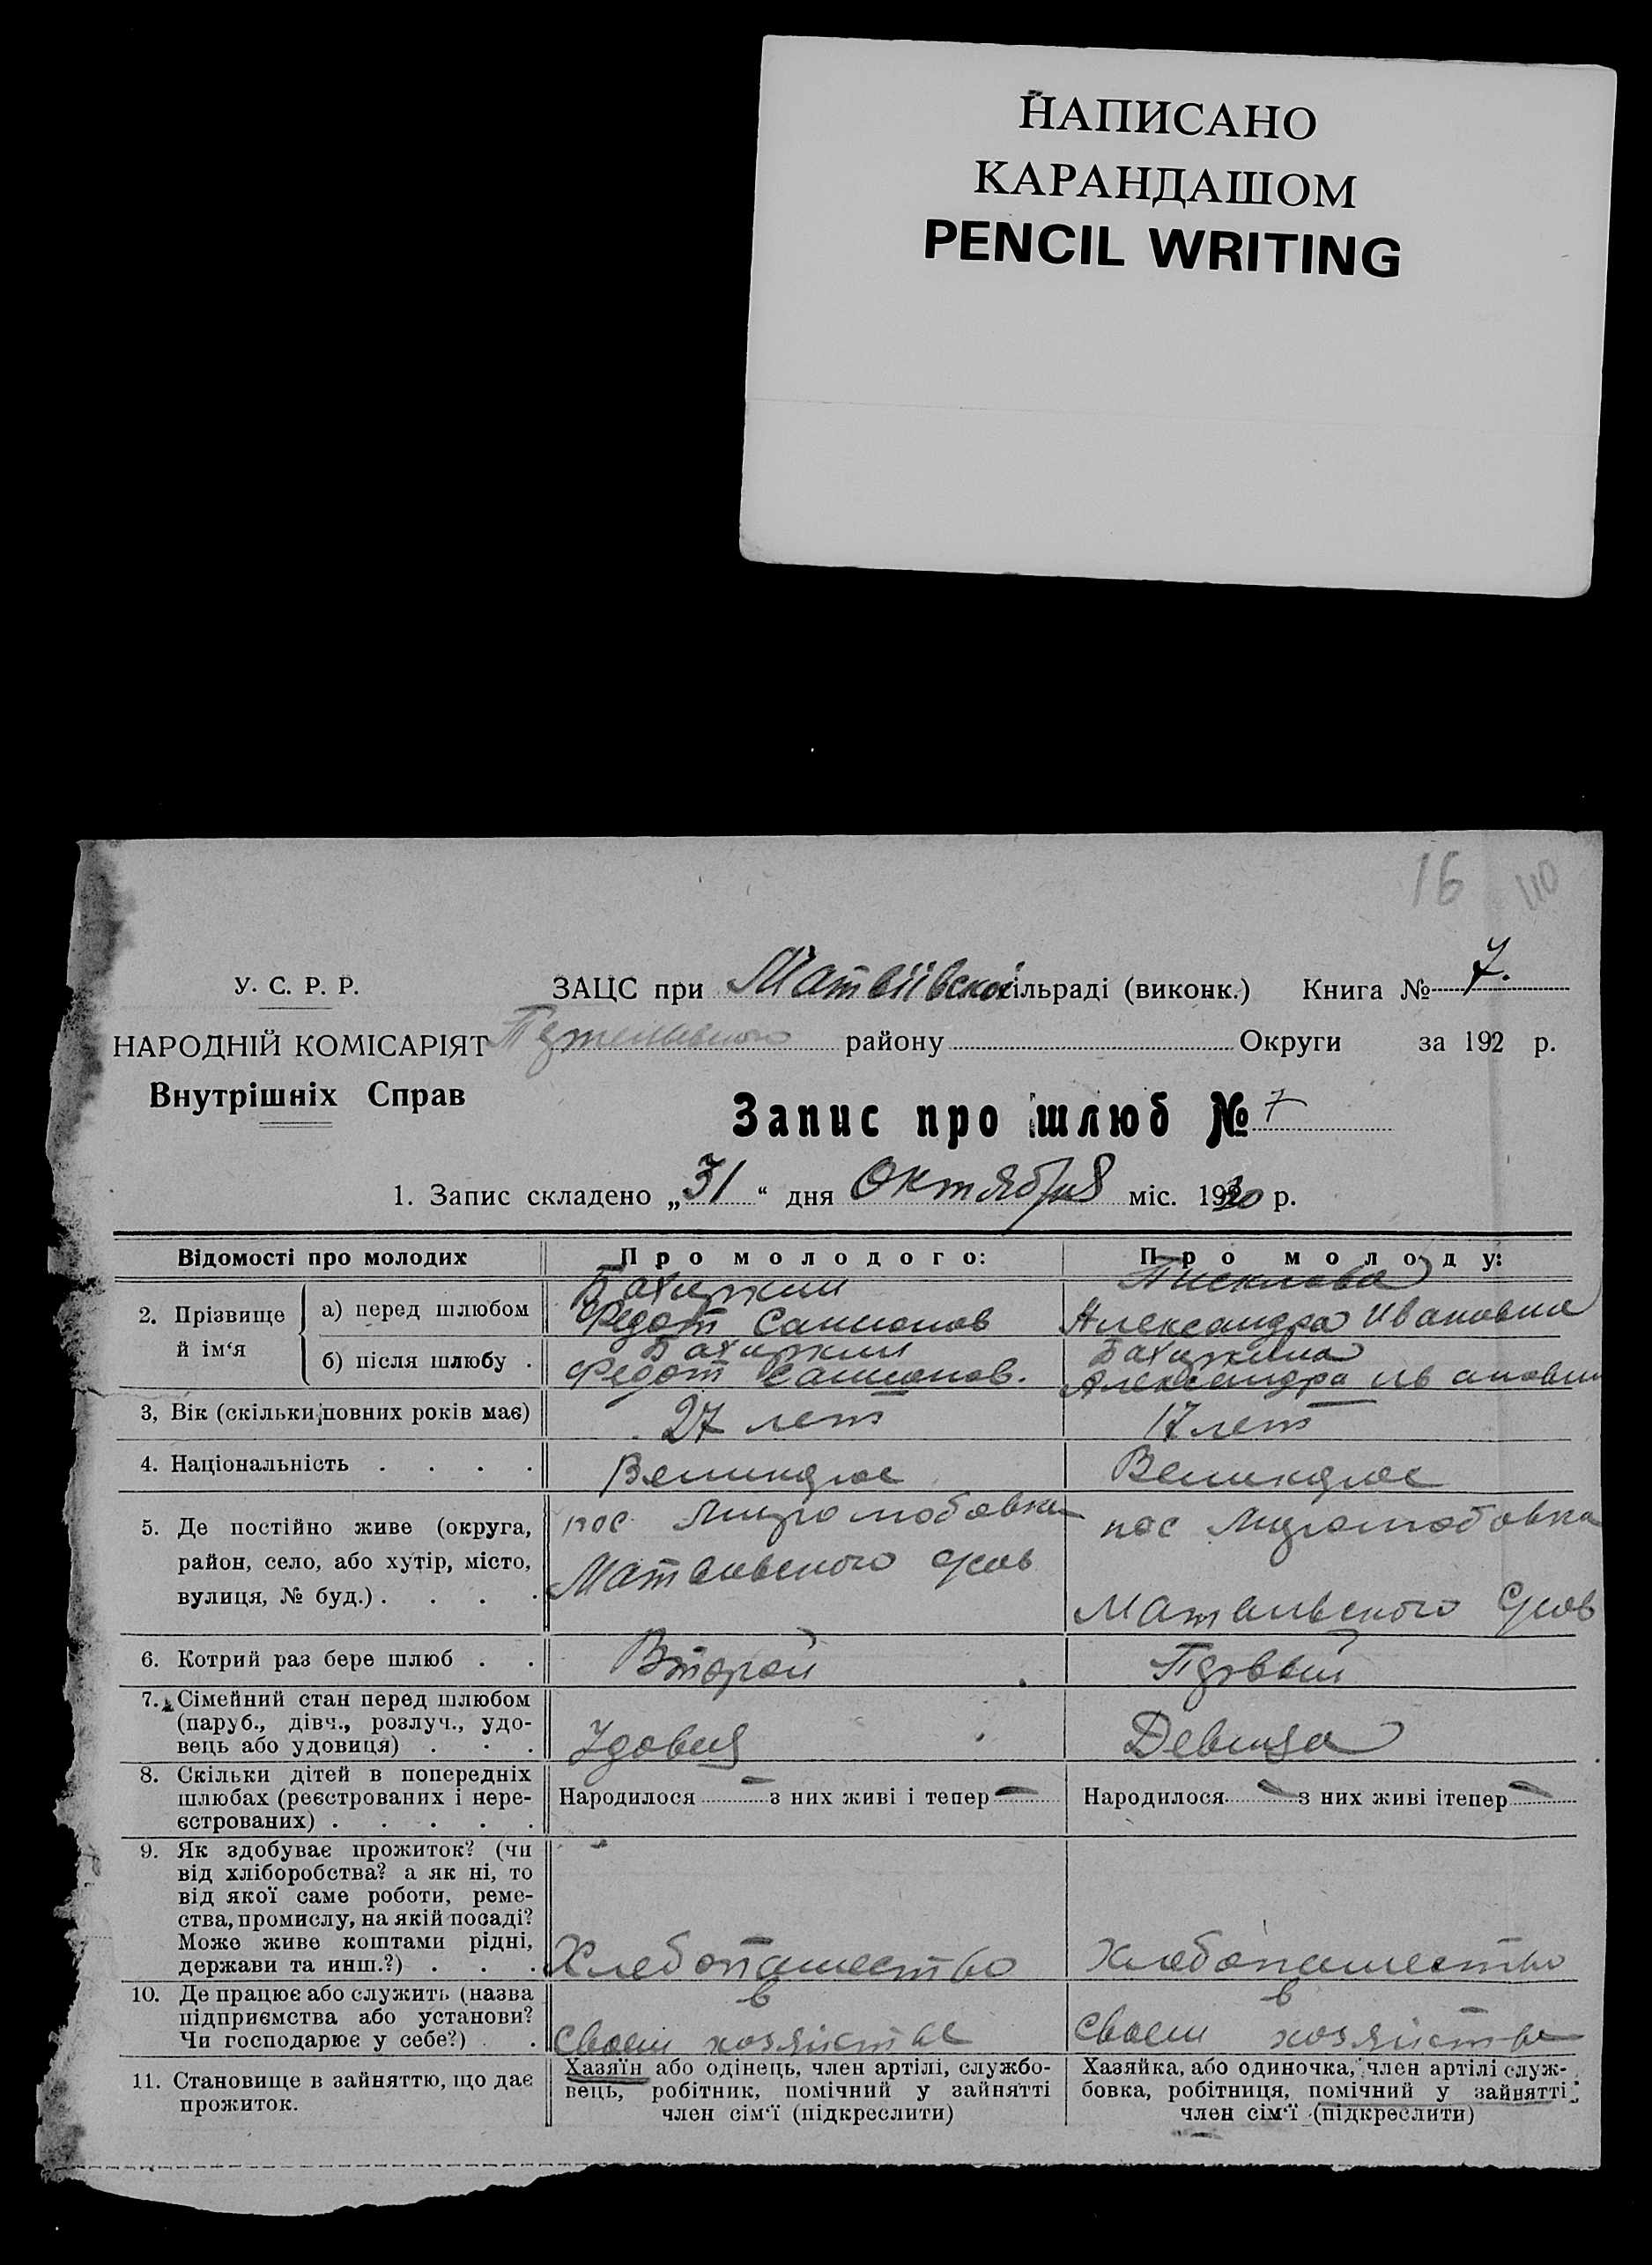 НАПИСАНО
КАРАНДАШОМ
PENCIL WRITING
16
110
У. С. Р. Р.
ЗАЦС при Матвіївской сільраді (виконк.) Книга № 7.
НАРОДНІЙ КОМІСАРІЯТ
району Округи за 192 р.
Внутрішніх Справ
Запис про шлюб № 7
1. Запис складено „31“ дня Октября міс. 1930 р.
Відомості про молодих
Про молодого:
Про молоду:
2. Прізвище й ім‘я
а) перед шлюбом
Федот
Александра Ивановна
б) після шлюбу .
Федот
Александра Ивановна
3, Вік (скільки повних років має)
27 лет
17 лет
4. Національність . . . .
Великорос
Великорос
5. Де постійно живе (округа,
район, село, або хутір, місто,
вулиця, № буд.) . . . .
пос Миролюбовка
Матвиевского
пос Миролюбовка
Матвиевского
6. Котрий раз бере шлюб . .
Второй
Первый
7. Сімейний стан перед шлюбом
(паруб., дівч., розлуч., удо-
вець або удовиця) . . .
Удовец
Девица
8. Скільки дітей в попередніх
шлюбах (реєстрованих і нере-
єстрованих) . . . . .
Народилося — з них живі і тепер —
Народилося — з них живі ітепер —
9. Як здобуває прожиток? (чи
від хліборобства? а як ні, то
від якої саме роботи, реме-
ства, промислу, на якій посаді?
Може живе коштами рідні,
держави та инш.?) . . .
Хлебопашество
Хлебопашество
10. Де працює або служить (назва
підприємства або установи?
Чи господарює у себе?) . .
в
своем хозяистве
в
своем хозяистве
11. Становище в зайняттю, що дає
прожиток.
Хазяїн або одінець, член артілі, службо-
вець, робітник, помічний у зайнятті
член сім‘ї (підкреслити)
Хазяйка, або одиночка, член артілі служ-
бовка, робітниця, помічний у зайнятті
член сім‘ї (підкреслити)